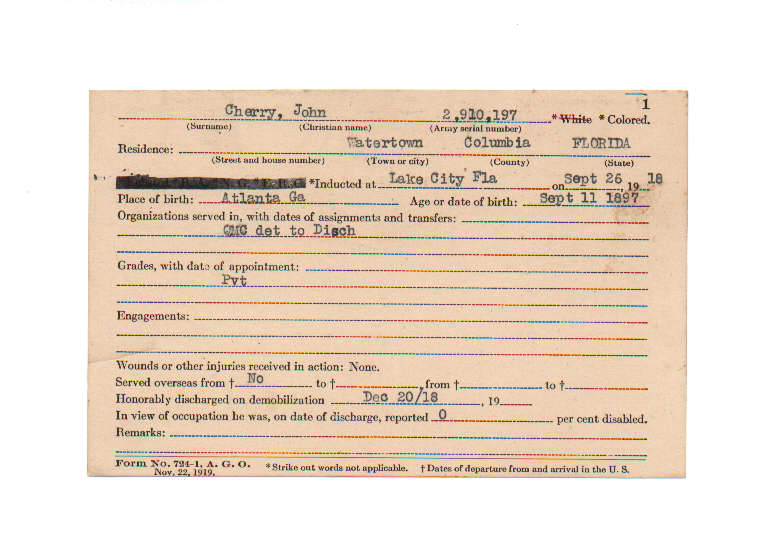 1
Cherry, John 2,910,197 * White * Colored.
(Surname) (Christian name) (Army serial number)
Residence: Watertown Columbia FLORIDA
(Street and house number) (Town or city) (County) (State)
*Inducted at Lake City Fla on Sept 26, 1918
Place of birth: Atlanta Ga Age or date of birth: Sept 11 1897
Organizations served in, with dates of assignments and transfers:
QMC det to Disch
Grades, with date of appointment:
Pvt
Engagements:
Wounds or other injuries received in action: None.
Served overseas from † No to †, from † to †
Honorably discharged on demobilization Dec 20/18, 19
In view of occupation he was, on date of discharge, reported 0 per cent disabled.
Remarks:
Form No. 724-1, A. G. O. * Strike out words not applicable. † Dates of departure from and arrival in the U. S.
Nov. 22, 1919.